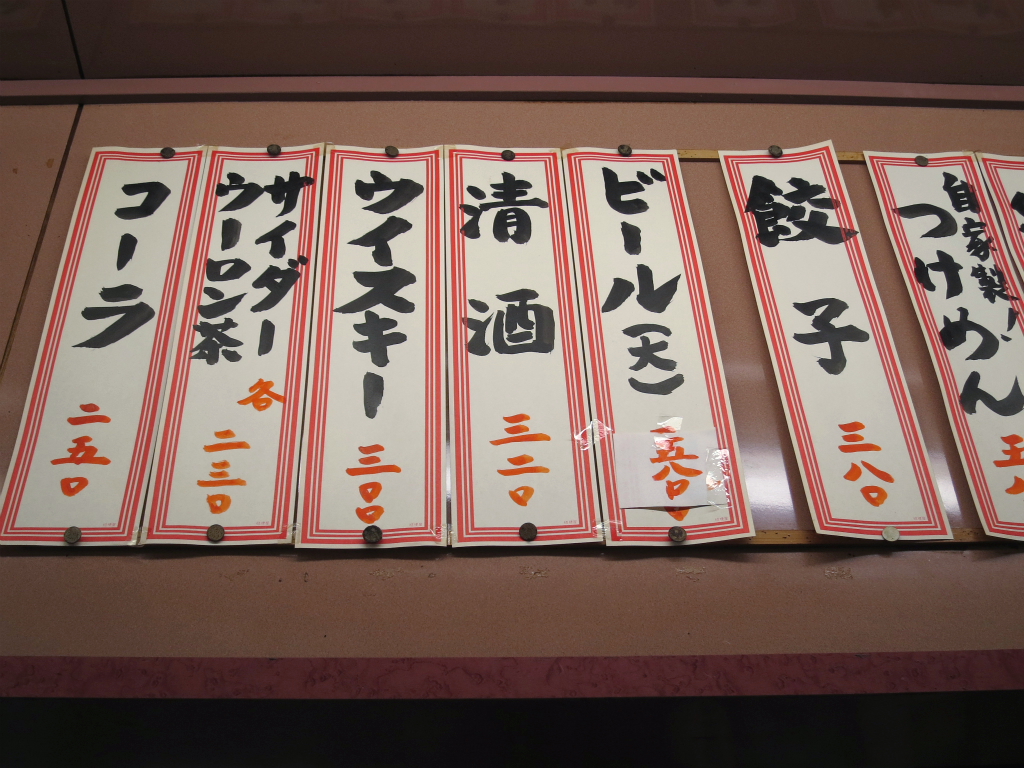 自家製!
つけめん
餃子
三八〇
ビール(大)
五八〇
清酒
三二〇
ウイスキー
三〇〇
サイダー
ウーロン茶
各
二三〇
コーラ
二五〇